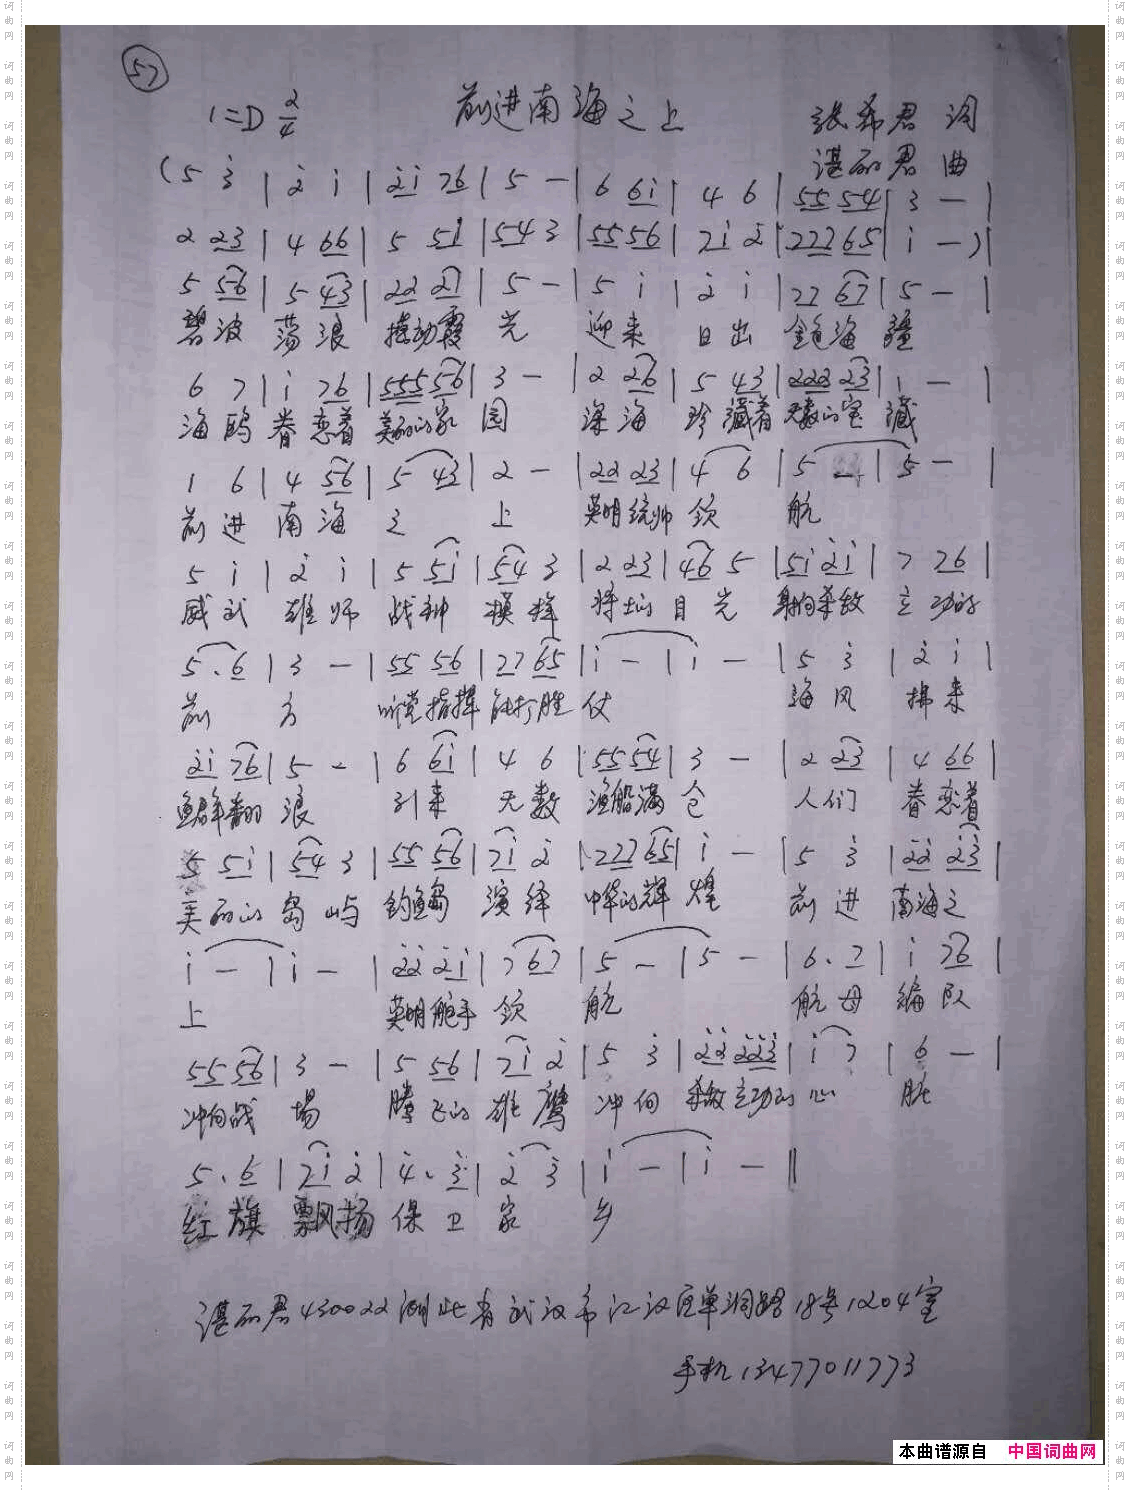 57
1=D 2/4 前进南海之上 张希君 词
谌丽君 曲
(5 3̇ | 2̇ 1̇ | 2̇1̇ 76 | 5 — | 6 61̇ | 4 6 | 55 54 | 3 — |
2 23 | 4 66 | 5 51̇ | 54 3 | 55 56 | 71̇ 2̇ | 22765 | 1̇ —) |
5 56 | 5 43 | 22 27 | 5 — | 5 1̇ | 2̇ 1̇ | 77 67 | 5 — |
碧波 荡浪 摇动霞 光 迎来 日出 金色海 疆
6 7 | 1̇ 76 | 555556 | 3 — | 2 26 | 5 43 | 222 23 | 1 — |
海鸥 眷恋着 美丽的家 园 深海 珍藏着 无数的宝 藏
1 6 | 4 56 | 5 43 | 2 — | 22 23 | 4 6 | 5 — | 5 — |
前进 南海 之 上 英明统帅 领 航
5 1̇ | 2̇ 1̇ | 5 51̇ | 54 3 | 2 23 | 46 5 | 51̇ 2̇1̇ | 7 76 |
威武 雄师 战神 模样 将士的 目光 射向杀敌 立功的
5.6 | 3 — | 55 56 | 27 65 | 1̇ — | 1̇ — | 5 3̇ | 2̇ 1̇ |
前 方 听党指挥 能打胜 仗 海风 拂来
2̇1̇ 76 | 5 — | 6 61̇ | 4 6 | 55 54 | 3 — | 2 23 | 4 66 |
鱼群翻 浪 引来 无数 渔船满 仓 人们 眷恋着
5 51̇ | 54 3 | 55 56 | 71̇ 2̇ | 22765 | 1̇ — | 5 3̇ | 2̇2̇ 2̇3̇ |
美丽的 岛屿 钓鱼岛 演绎 中华的辉 煌 前进 南海之
1̇ — | 1̇ — | 2̇2̇ 2̇1̇ | 767 | 5 — | 5 — | 6.7 | 1̇ 76 |
上 英明舵手 领 航 航母 编队
55 56 | 3 — | 5 56 | 71̇ 2̇ | 5 3̇ | 2̇2̇ 2̇2̇3̇ | 1̇ 7 | 6 — |
冲向战 场 腾飞的 雄鹰 冲向 杀敌立功的 心 脏
5.6 | 71̇ 2̇ | 4̇.3̇ | 2̇ 3̇ | 1̇ — | 1̇ — ‖
红旗 飘扬 保卫 家 乡
谌丽君430022湖北省武汉市江汉区单洞路18号1204室
手机13477011773
本曲谱源自 中国词曲网